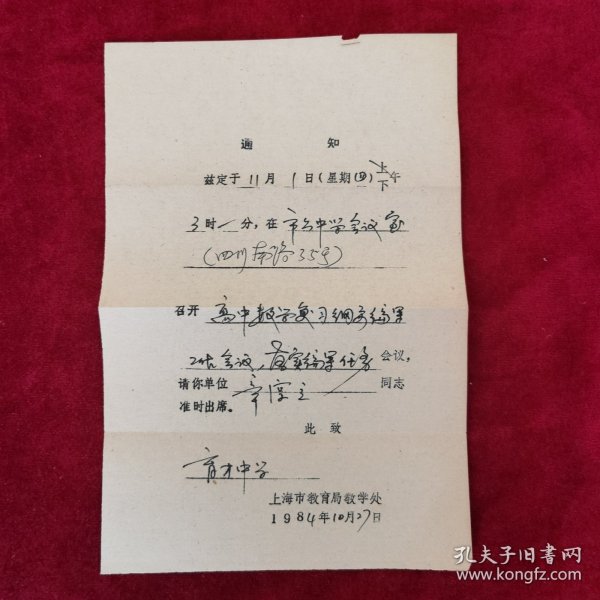 通 知
兹定于 11月 1日(星期四) 上/下午
3时 一 分,在 市六中学会议室
(四川南路35号)
召开 高中数学复习纲要编写
工作会议,落实编写任务 会议,
请你单位 章淳立 同志
准时出席。
此 致
育才中学
上海市教育局教学处
1984年10月27日
孔夫子旧书网
www.kongfz.com